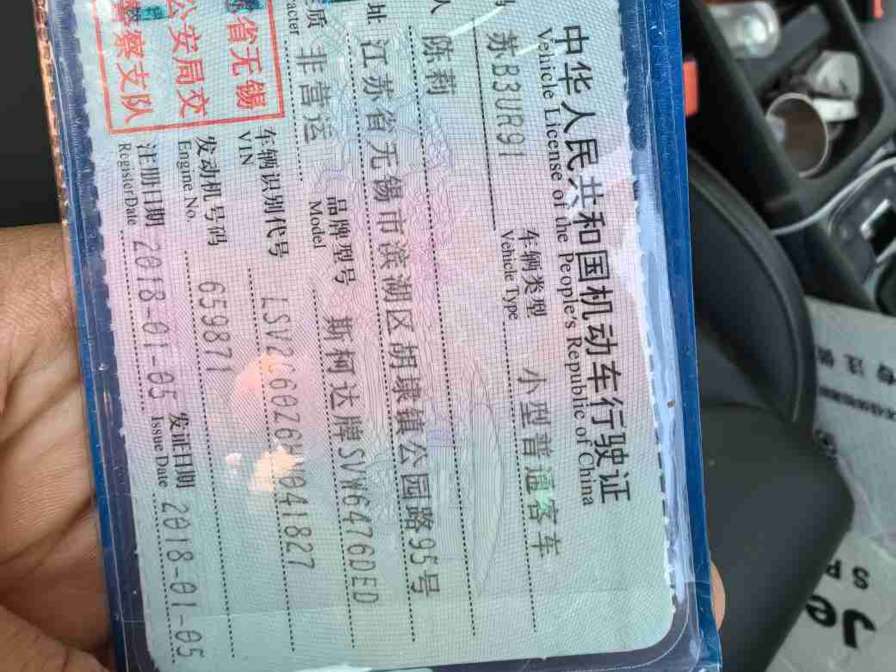 中华人民共和国机动车行驶证
Vehicle License of the People's Republic of China
苏B3UR91
车辆类型
Vehicle Type
小型普通客车
人
陈莉
址
江苏省无锡市滨湖区胡埭镇公园路95号
质
非营运
品牌型号
Model
斯柯达牌SVW6476DED
省无锡
公安局交
警察支队
车辆识别代号
VIN
发动机号码
Engine No.
659871
注册日期
Register Date
2018-01-05
发证日期
Issue Date
2018-01-05
Je